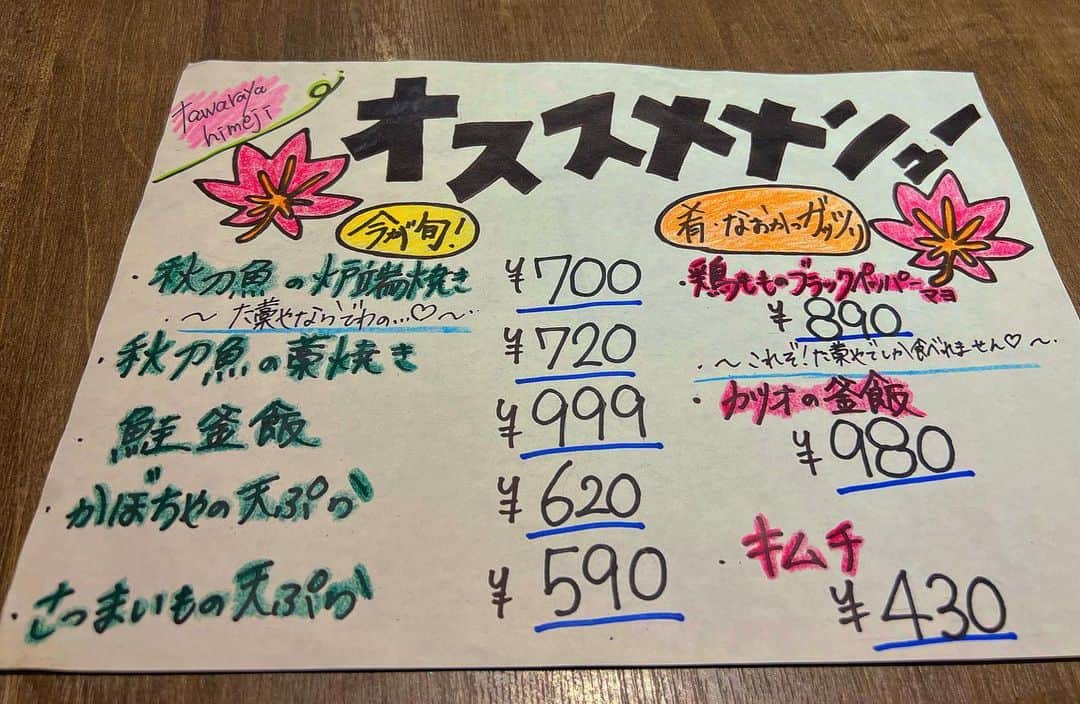 tawaraya
himeji
オススメナンッ!
今が旬!
・秋刀魚の炉端焼き ¥700
・〜た藁やならでわの…♡〜・
・秋刀魚の藁焼き ¥720
・鮭釜飯 ¥999
・かぼちゃの天ぷら ¥620
・さつまいもの天ぷら ¥590
肴・なおかつガッツリ
・鶏もものブラックペッパーマヨ
¥890
・〜これぞ!た藁やでしか食べれません♡〜・
・カツオの釜飯
¥980
・キムチ
¥430